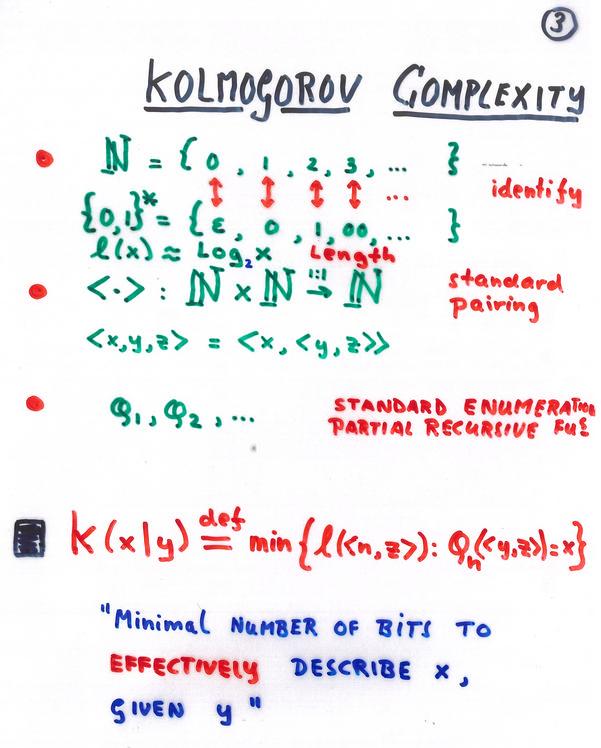 3
KOLMOGOROV COMPLEXITY
• ℕ = { 0 , 1 , 2 , 3 , ... }
↕ ↕ ↕ ↕ ... identify
{0,1}* = { ε , 0 , 1 , 00 , ... }
l(x) ≈ Log₂ x Length
• <·> : ℕ × ℕ →^{1:1} ℕ standard
pairing
<x,y,z> = <x, <y,z>>
• φ₁, φ₂, ... STANDARD ENUMERATION
PARTIAL RECURSIVE
■ K(x|y) =^{def} min{l(<n,z>): φₙ(<y,z>)=x}
"Minimal NUMBER OF BITS TO
EFFECTIVELY DESCRIBE x,
GIVEN y"